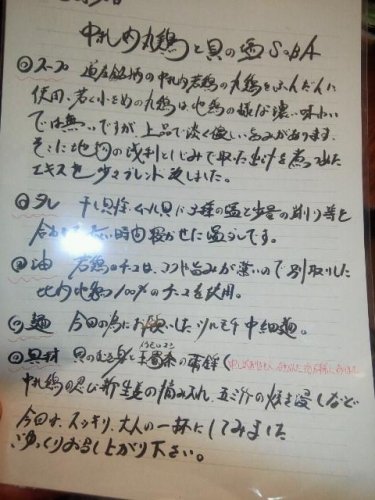 中札内丸鶏と貝の塩SoBA
◎スープ 道産銘柄の中札内若鶏の丸鶏をふんだんに
使用。若く小さめの丸鶏は地鶏の様な濃い味わい
では無いですが、上品で淡く優しい旨みがあります。
そこに地物の浅利としじみで取った出汁を煮つめた
エキスを少々ブレンド致しました。
◎タレ 干し貝柱、ムール貝に3種の塩と少量の削り節と
合わせ 長い時間寝かせた塩ダレです。
◎油 若鶏のチー油は、コクと旨みが薄いので別取りした
比内地鶏100%のチー油を使用。
◎麺 今回の為にお願いしたツルモチ中細麺。
◎具材 貝のむき身と
中札内の忍び新生姜の摘み入れ、五三竹の焼き浸しなど
今回は、スッキリ、大人の一杯にしてみました
ゆっくりお召し上がり下さい。